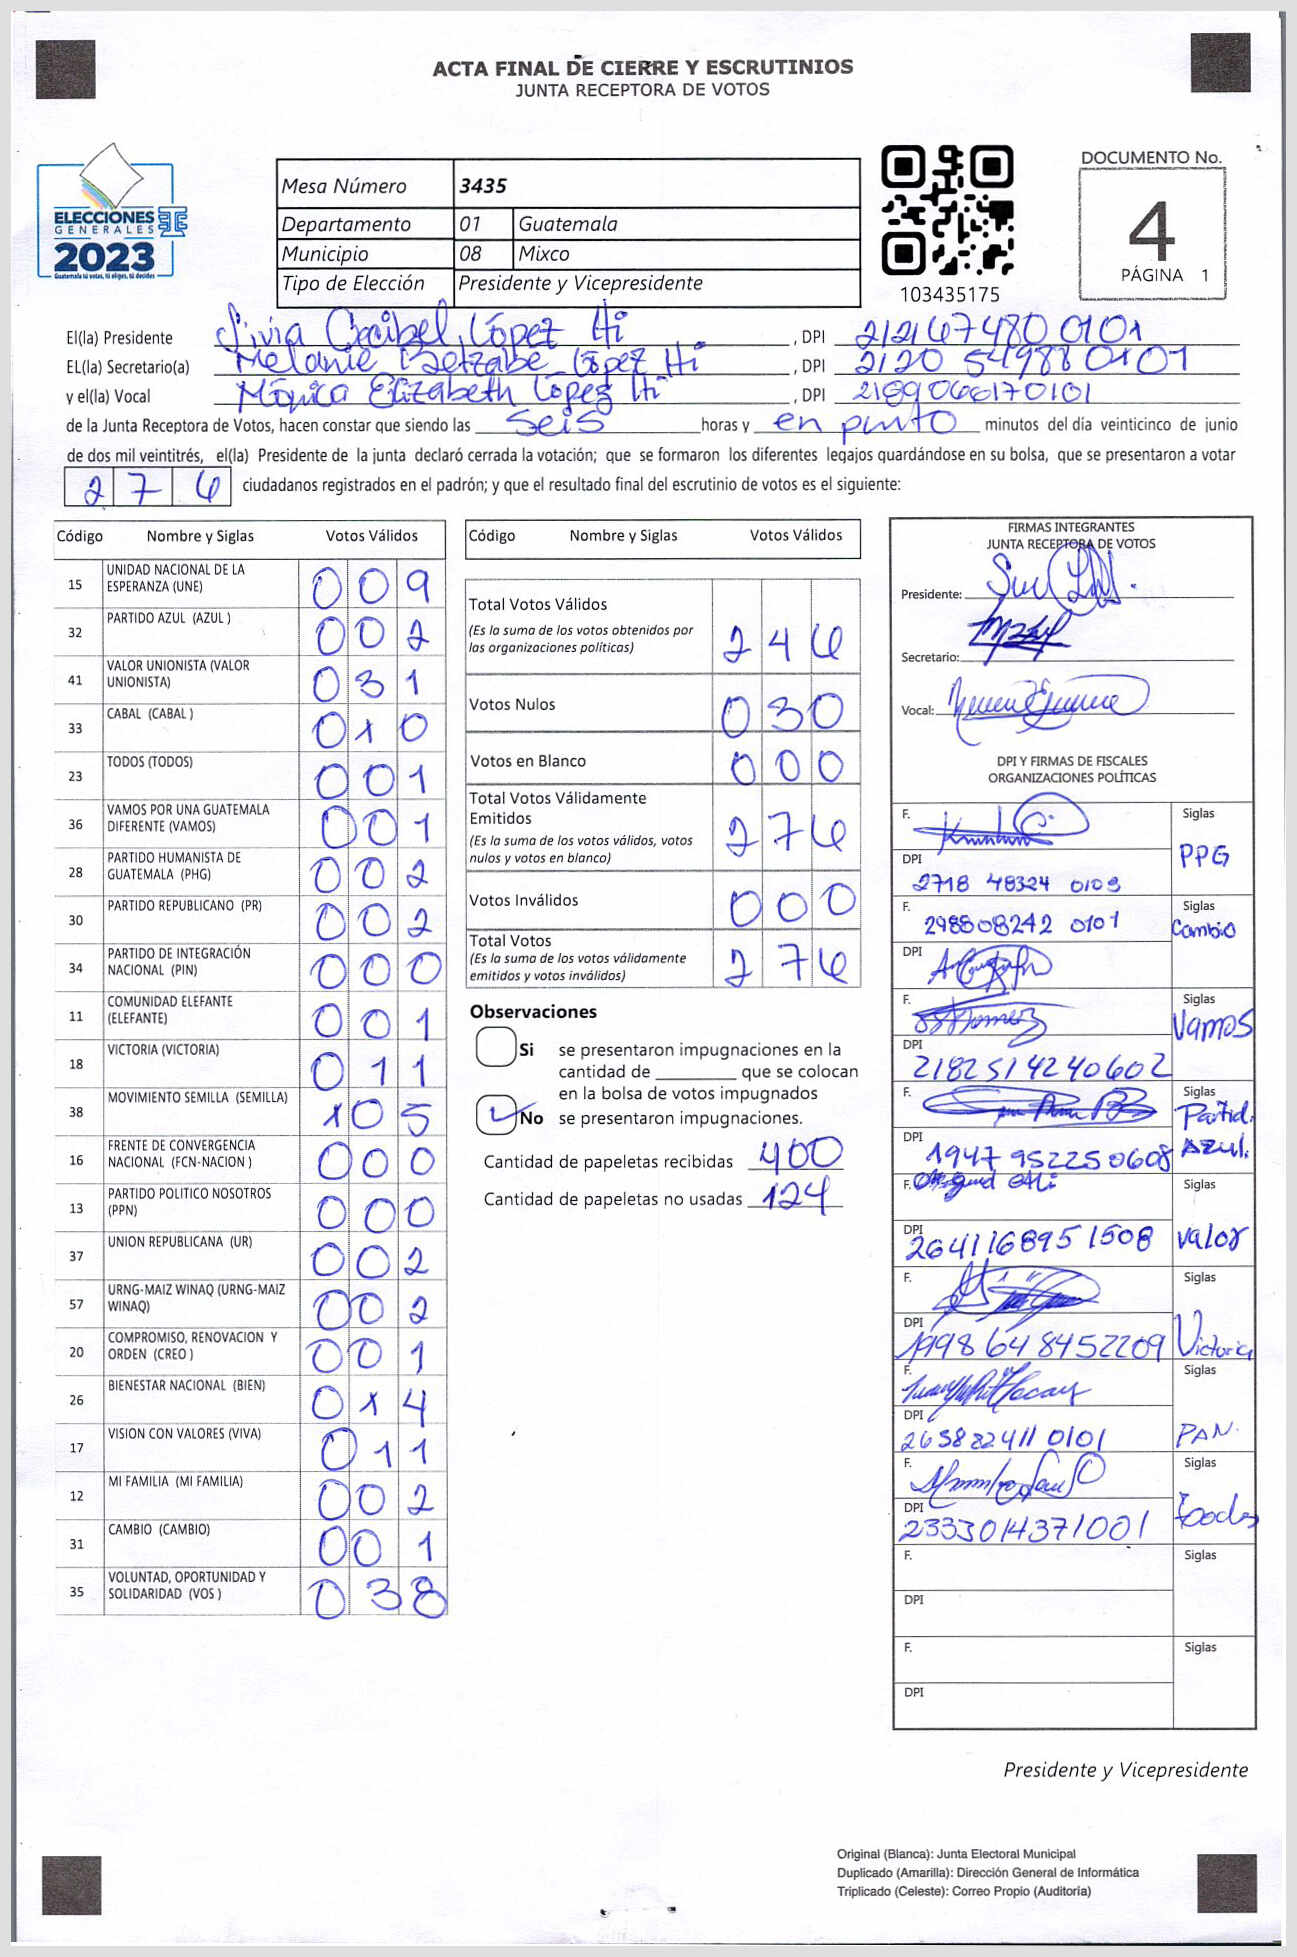 ACTA FINAL DE CIERRE Y ESCRUTINIOS
JUNTA RECEPTORA DE VOTOS
ELECCIONES
GENERALES
2023
Guatemala tú votas, tú eliges, tú decides
Mesa Número 3435
Departamento 01 Guatemala
Municipio 08 Mixco
Tipo de Elección Presidente y Vicepresidente
103435175
DOCUMENTO No.
4
PÁGINA 1
El(la) Presidente Silvia Cecibel López Hi, DPI 212167480 0101
EL(la) Secretario(a) Melanie Betzabe López Hi, DPI 2120 54988 0101
y el(la) Vocal Mónica Elizabeth López Hi, DPI 2189066170101
de la Junta Receptora de Votos, hacen constar que siendo las seis horas y en punto minutos del día veinticinco de junio
de dos mil veintitrés, el(la) Presidente de la junta declaró cerrada la votación; que se formaron los diferentes legajos guardándose en su bolsa, que se presentaron a votar
276 ciudadanos registrados en el padrón; y que el resultado final del escrutinio de votos es el siguiente:
Código Nombre y Siglas Votos Válidos
15 UNIDAD NACIONAL DE LA ESPERANZA (UNE) 009
32 PARTIDO AZUL (AZUL ) 002
41 VALOR UNIONISTA (VALOR UNIONISTA) 031
33 CABAL (CABAL ) 010
23 TODOS (TODOS) 001
36 VAMOS POR UNA GUATEMALA DIFERENTE (VAMOS) 001
28 PARTIDO HUMANISTA DE GUATEMALA (PHG) 002
30 PARTIDO REPUBLICANO (PR) 002
34 PARTIDO DE INTEGRACIÓN NACIONAL (PIN) 000
11 COMUNIDAD ELEFANTE (ELEFANTE) 001
18 VICTORIA (VICTORIA) 011
38 MOVIMIENTO SEMILLA (SEMILLA) 105
16 FRENTE DE CONVERGENCIA NACIONAL (FCN-NACION ) 000
13 PARTIDO POLITICO NOSOTROS (PPN) 000
37 UNION REPUBLICANA (UR) 002
57 URNG-MAIZ WINAQ (URNG-MAIZ WINAQ) 002
20 COMPROMISO, RENOVACION Y ORDEN (CREO ) 001
26 BIENESTAR NACIONAL (BIEN) 014
17 VISION CON VALORES (VIVA) 011
12 MI FAMILIA (MI FAMILIA) 002
31 CAMBIO (CAMBIO) 001
35 VOLUNTAD, OPORTUNIDAD Y SOLIDARIDAD (VOS ) 038
Código Nombre y Siglas Votos Válidos
Total Votos Válidos 246
(Es la suma de los votos obtenidos por
las organizaciones políticas)
Votos Nulos 030
Votos en Blanco 000
Total Votos Válidamente
Emitidos 276
(Es la suma de los votos válidos, votos
nulos y votos en blanco)
Votos Inválidos 000
Total Votos 276
(Es la suma de los votos válidamente
emitidos y votos inválidos)
Observaciones
Si se presentaron impugnaciones en la
cantidad de ________ que se colocan
en la bolsa de votos impugnados
No se presentaron impugnaciones.
Cantidad de papeletas recibidas 400
Cantidad de papeletas no usadas 124
FIRMAS INTEGRANTES
JUNTA RECEPTORA DE VOTOS
Presidente:
Secretario:
Vocal:
DPI Y FIRMAS DE FISCALES
ORGANIZACIONES POLÍTICAS
F. Siglas PPG
DPI 2718 48324 0103
F. 298808242 0101 Siglas Cambio
DPI
F. Siglas Vamos
DPI 2182514240602
F. Siglas Partid. Azul.
DPI 1947 952250608
F. Siglas Valor
DPI 2641168951508
F. Siglas Victoria
DPI 1998648452209
F. Siglas PAN.
DPI 2658822411 0101
F. Siglas todos
DPI 2333014371001
F. Siglas
DPI
F. Siglas
DPI
Presidente y Vicepresidente
Original (Blanca): Junta Electoral Municipal
Duplicado (Amarilla): Dirección General de Informática
Triplicado (Celeste): Correo Propio (Auditoría)